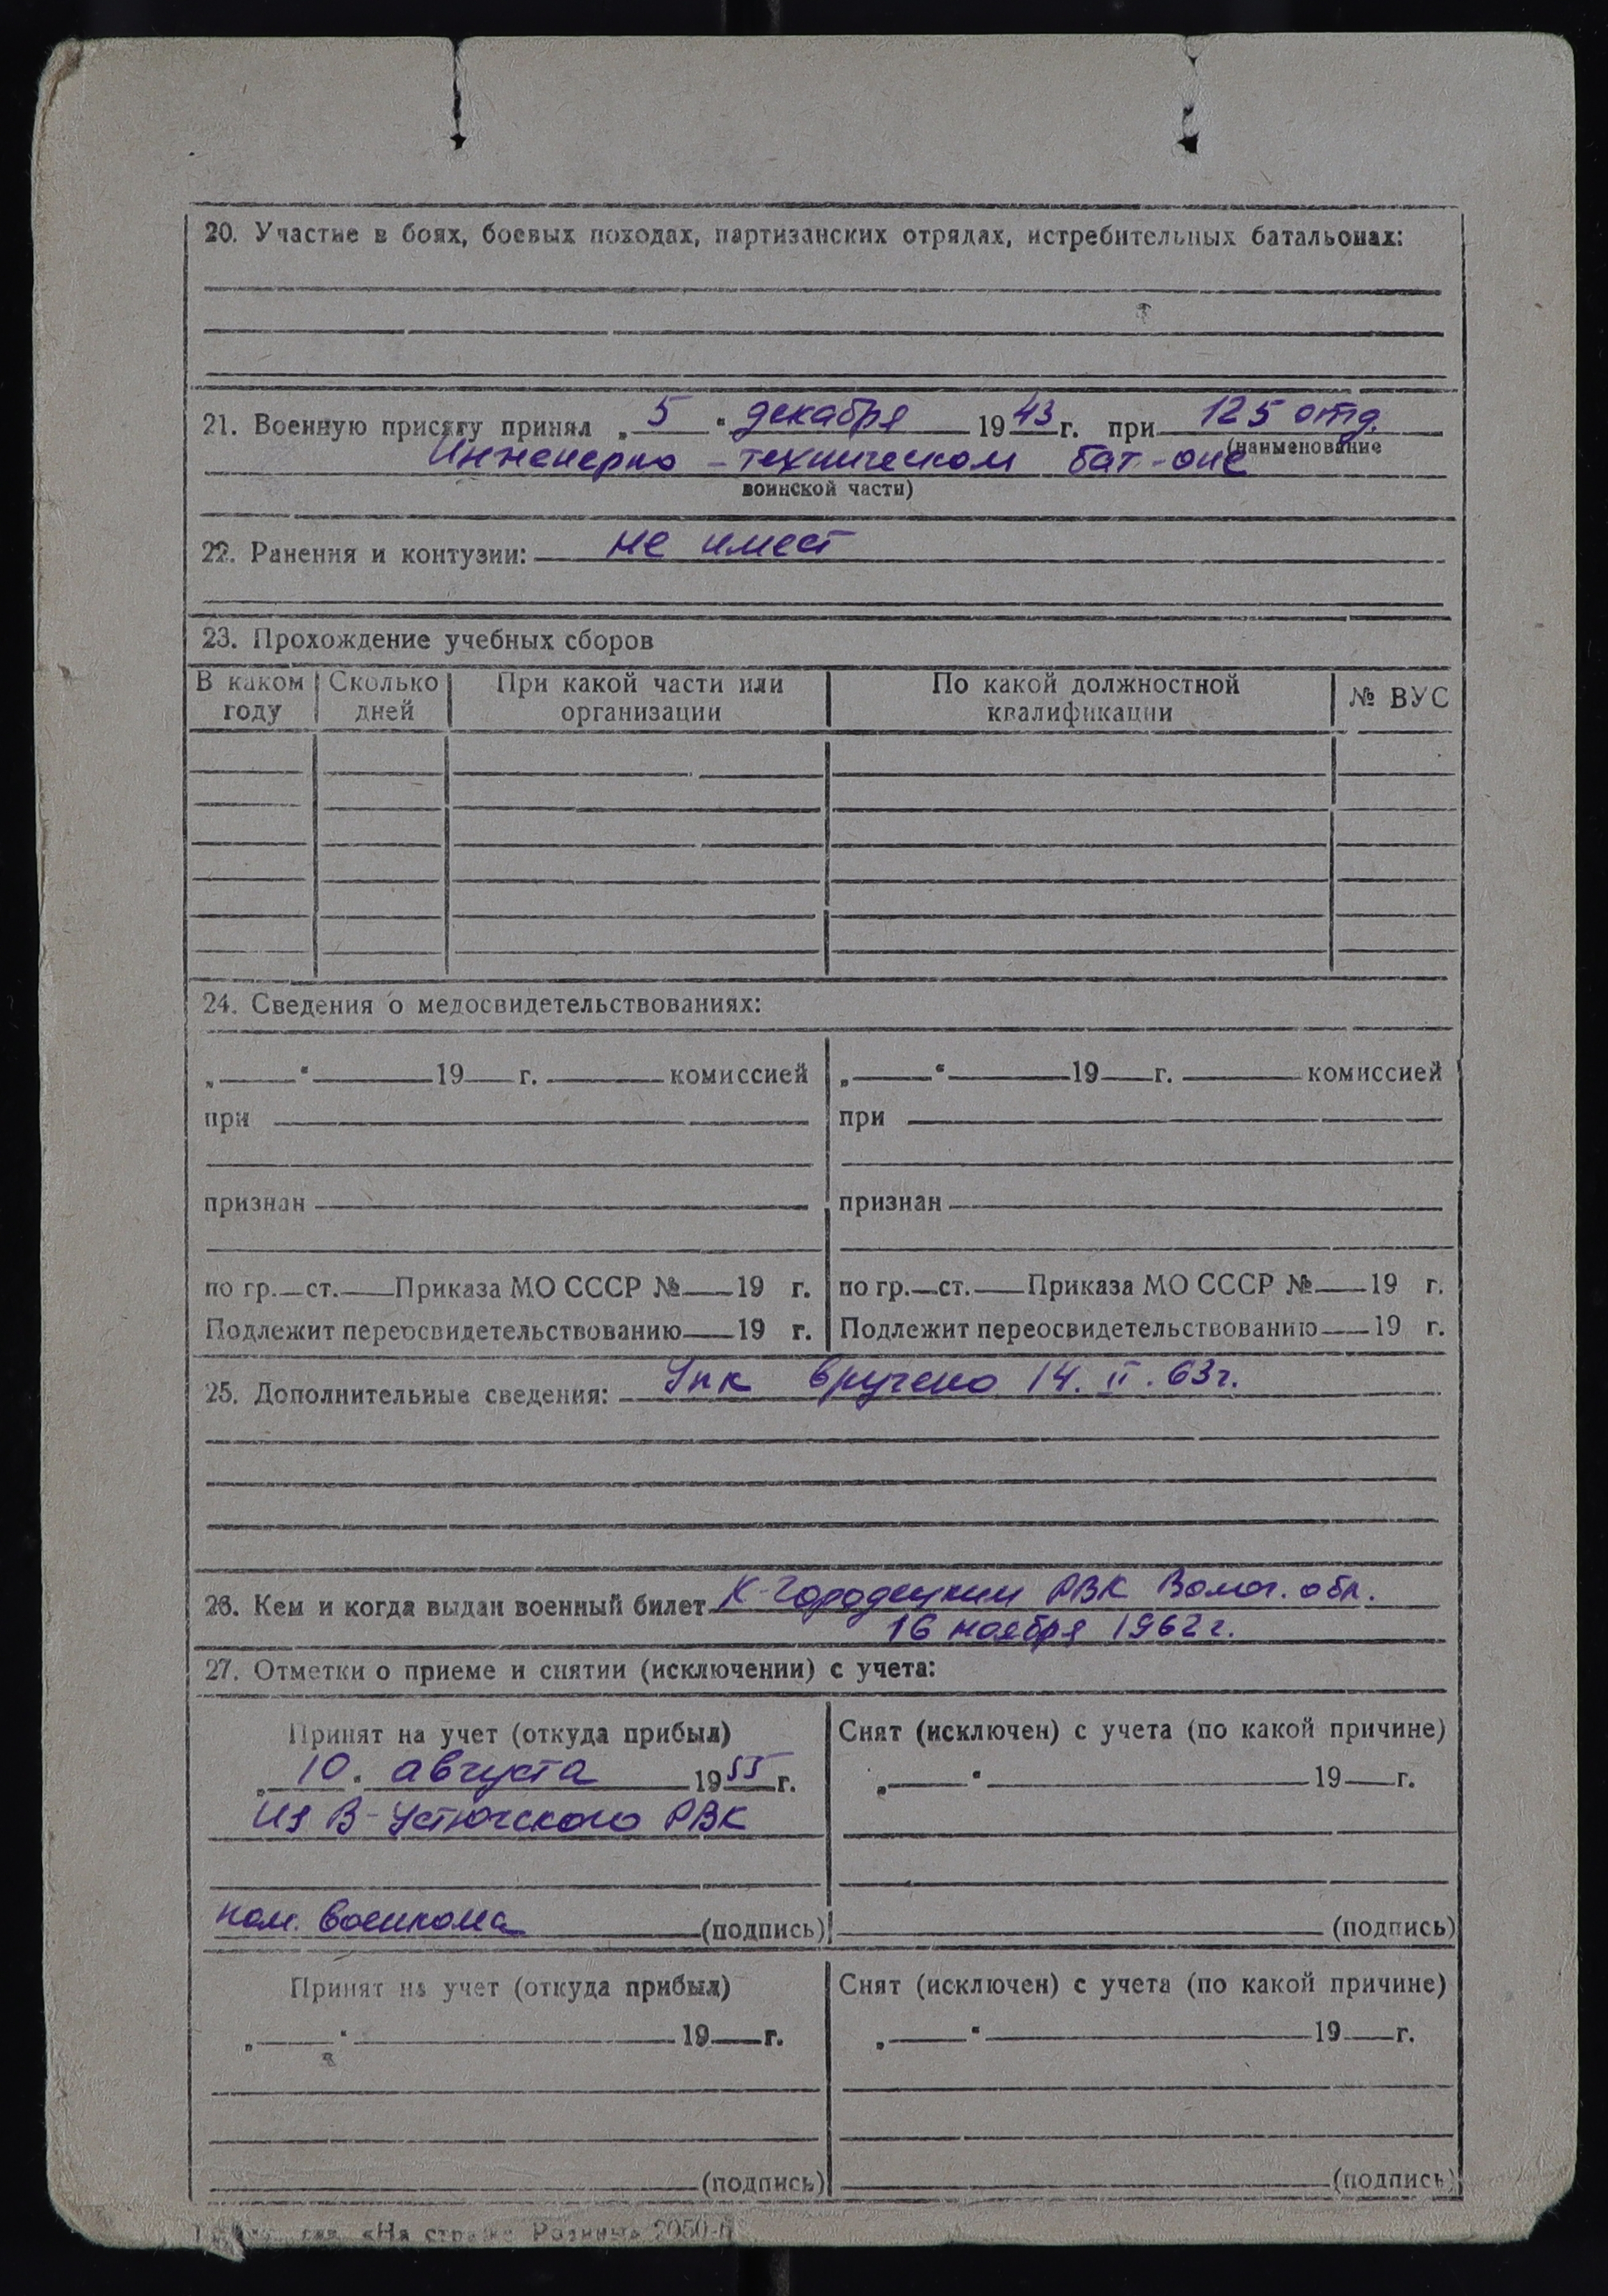 20. Участие в боях, боевых походах, партизанских отрядах, истребительных батальонах:
21. Военную присягу принял „ 5 “ декабря 1943 г. при 125 отд.
(наименование
Инженерно - техническом бат-оне
воинской части)
22. Ранения и контузии: не имеет
23. Прохождение учебных сборов
В каком году Сколько дней При какой части или организации По какой должностной квалификации № ВУС
24. Сведения о медосвидетельствованиях:
„ “ 19 г. комиссией „ “ 19 г. комиссией
при при
признан признан
по гр. ст. Приказа МО СССР № 19 г. по гр. ст. Приказа МО СССР № 19 г.
Подлежит переосвидетельствованию 19 г. Подлежит переосвидетельствованию 19 г.
25. Дополнительные сведения: Упк вручено 14. II. 63г.
26. Кем и когда выдан военный билет К-Городецким РВК Волог. обл.
16 ноября 1962 г.
27. Отметки о приеме и снятии (исключении) с учета:
Принят на учет (откуда прибыл) Снят (исключен) с учета (по какой причине)
„ 10. августа 1955 г. „ “ 19 г.
Из В-Устюгского РВК
пом. военкома (подпись) (подпись)
Принят на учет (откуда прибыл) Снят (исключен) с учета (по какой причине)
„ “ 19 г. „ “ 19 г.
(подпись) (подпись)
«На страже Родины» 2050-п